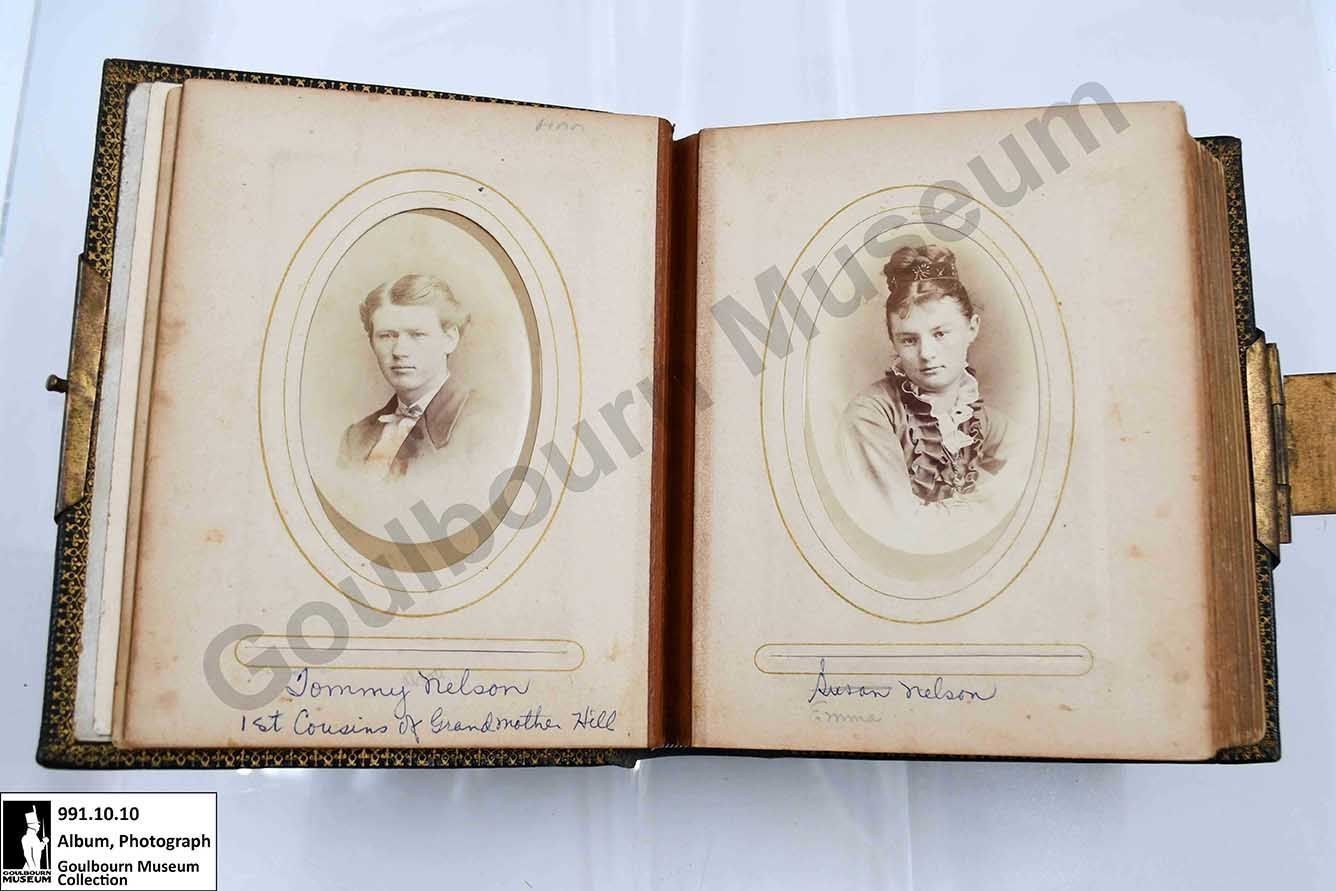 Tommy Nelson
1st Cousins of Grandmother Hill
Susan Nelson
Emma
Goulbourn Museum
991.10.10
Album, Photograph
Goulbourn Museum
Collection
GOULBOURN
MUSEUM